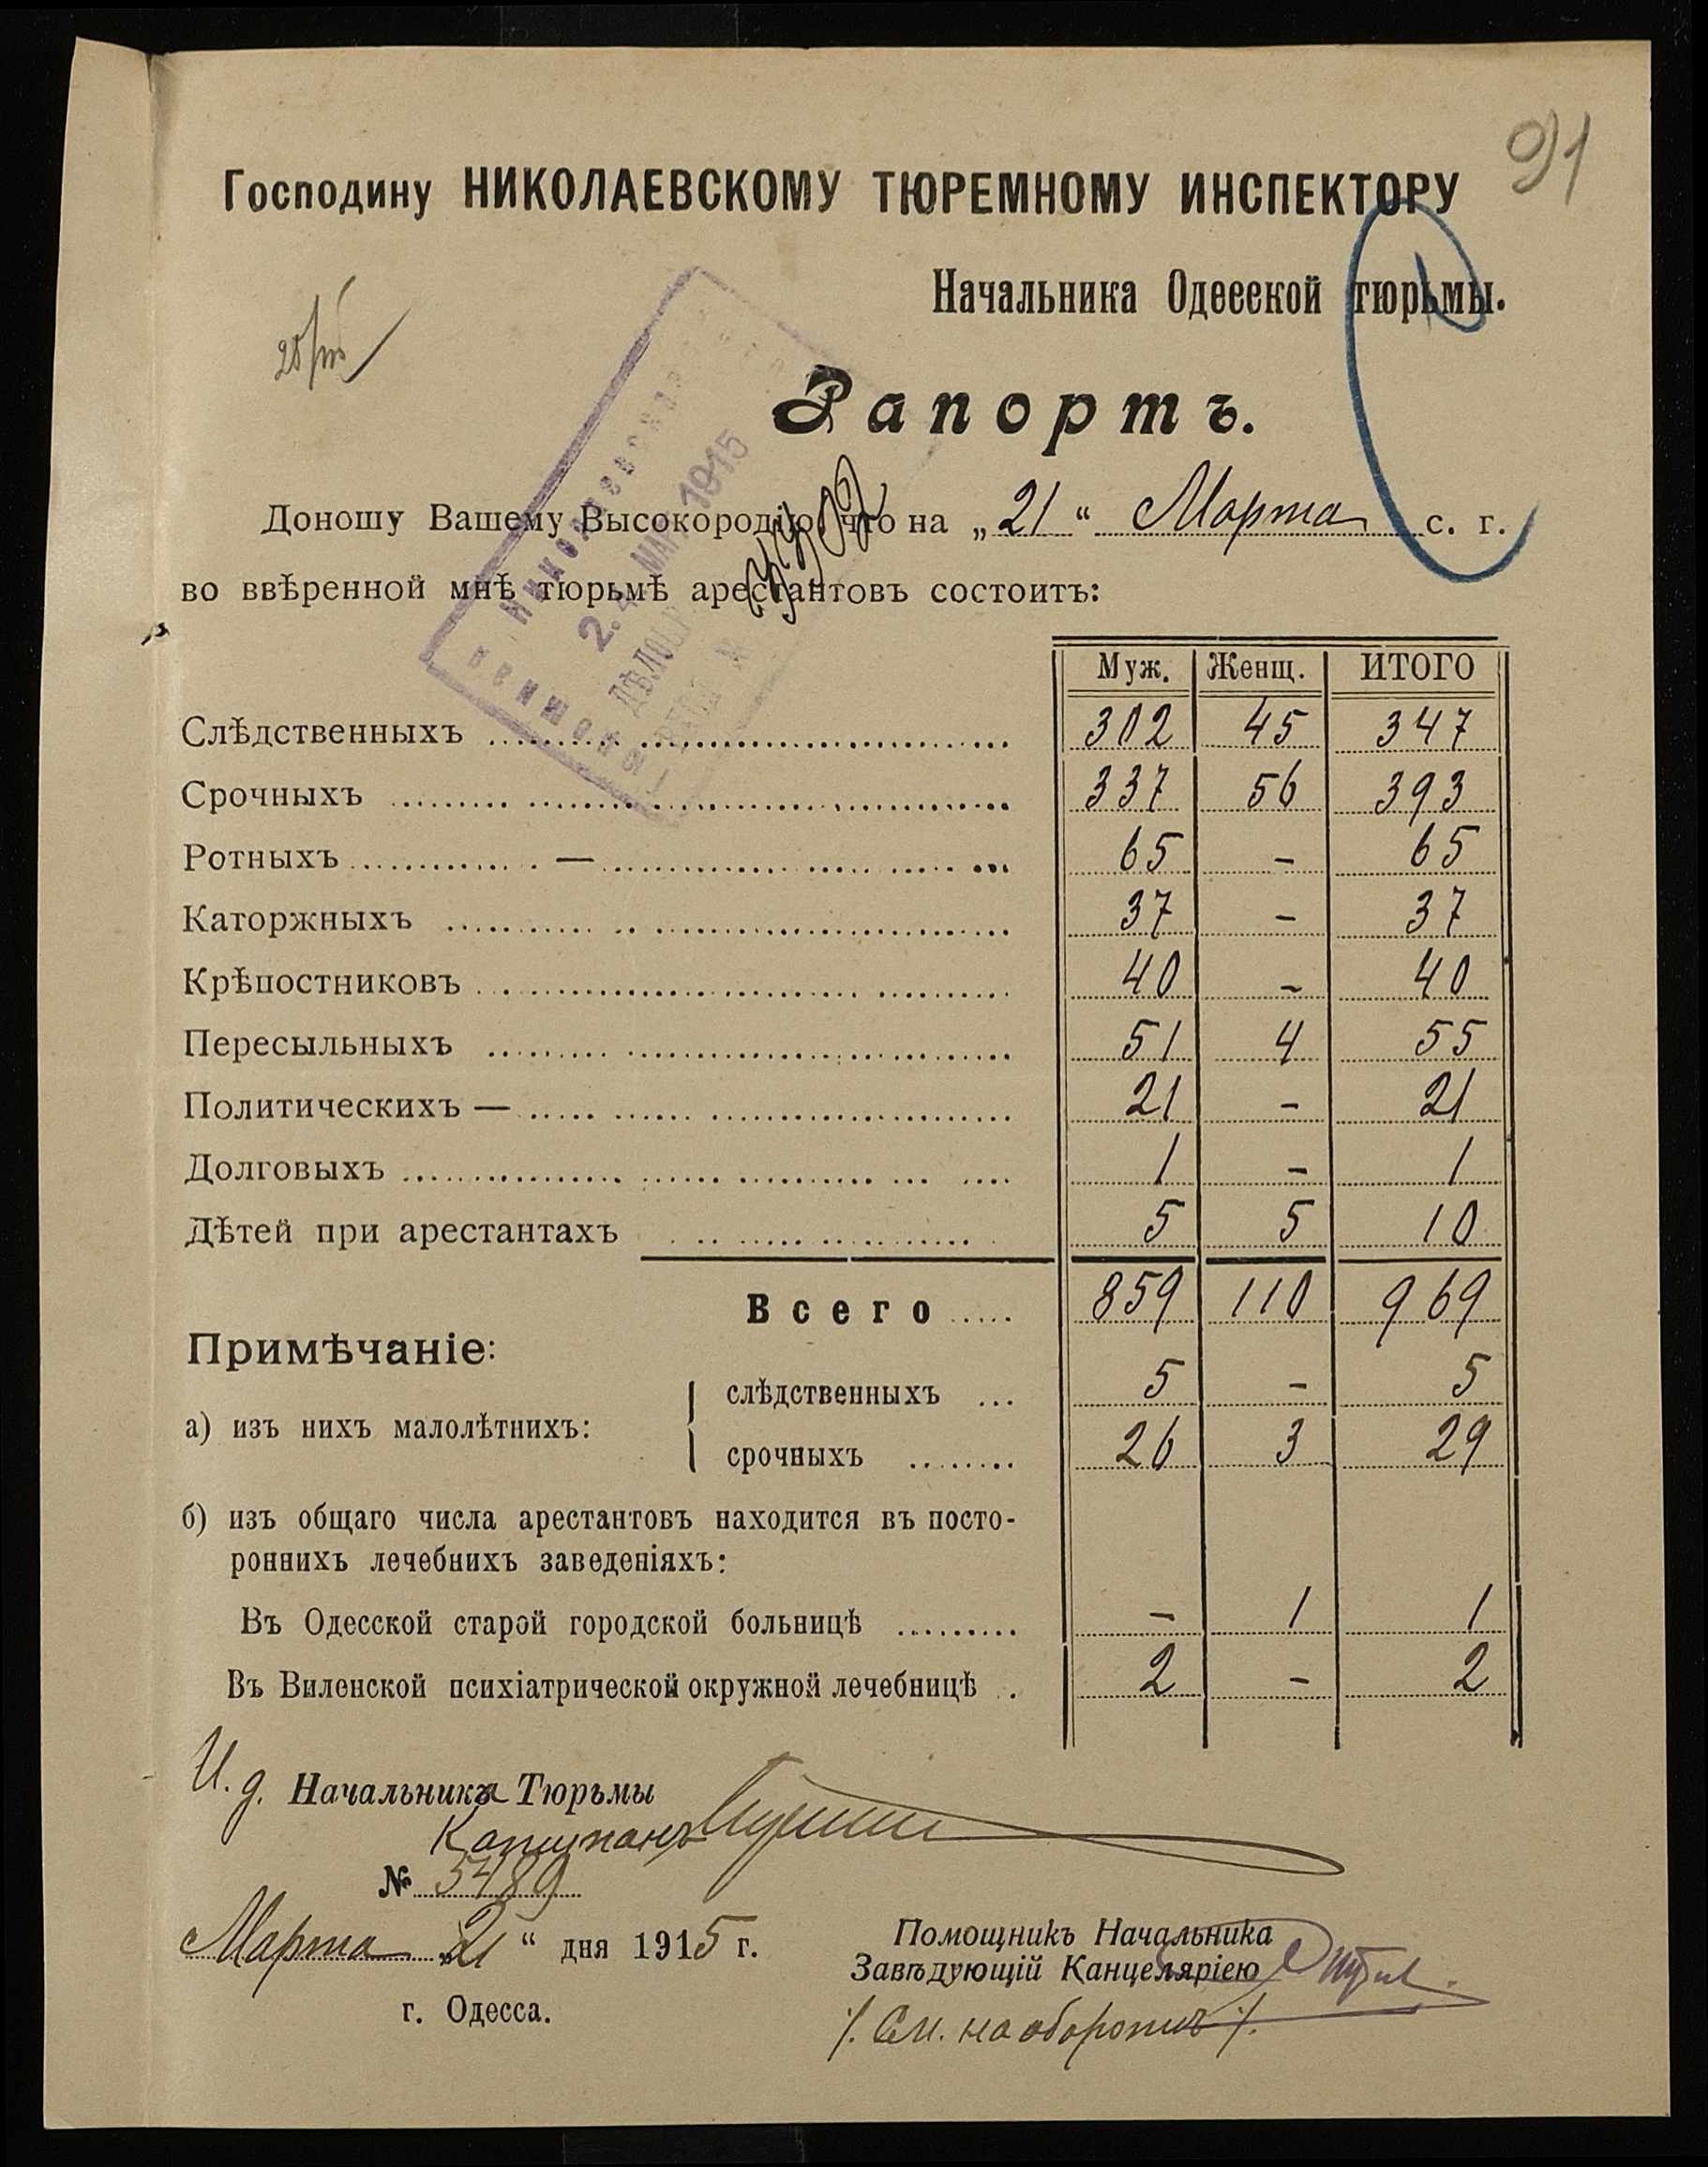 91
Господину НИКОЛАЕВСКОМУ ТЮРЕМНОМУ ИНСПЕКТОРУ
Начальника Одесской тюрьмы.
Рапортъ.
МАР 1915
Доношу Вашему Высокородію, что на „21“ Марта с. г.
во ввѣренной мнѣ тюрьмѣ арестантовъ состоитъ:
Муж. Женщ. ИТОГО
Слѣдственныхъ 302 45 347
Срочныхъ 337 56 393
Ротныхъ — 65 - 65
Каторжныхъ 37 - 37
Крѣпостниковъ 40 - 40
Пересыльныхъ 51 4 55
Политическихъ — 21 - 21
Долговыхъ 1 - 1
Дѣтей при арестантахъ 5 5 10
Всего 859 110 969
Примѣчаніе:
а) изъ нихъ малолѣтнихъ:
слѣдственныхъ 5 - 5
срочныхъ 26 3 29
б) изъ общаго числа арестантовъ находится въ посто-
роннихъ лечебнихъ заведеніяхъ:
Въ Одесской старой городской больницѣ - 1 1
Въ Виленской психіатрической окружной лечебницѣ 2 - 2
И. д. Начальника Тюрьмы
Капитанъ
№ 5489
Марта „21“ дня 1915 г.
г. Одесса.
Помощникъ Начальника
Завѣдующій Канцеляріею
/. См. на оборотѣ /.